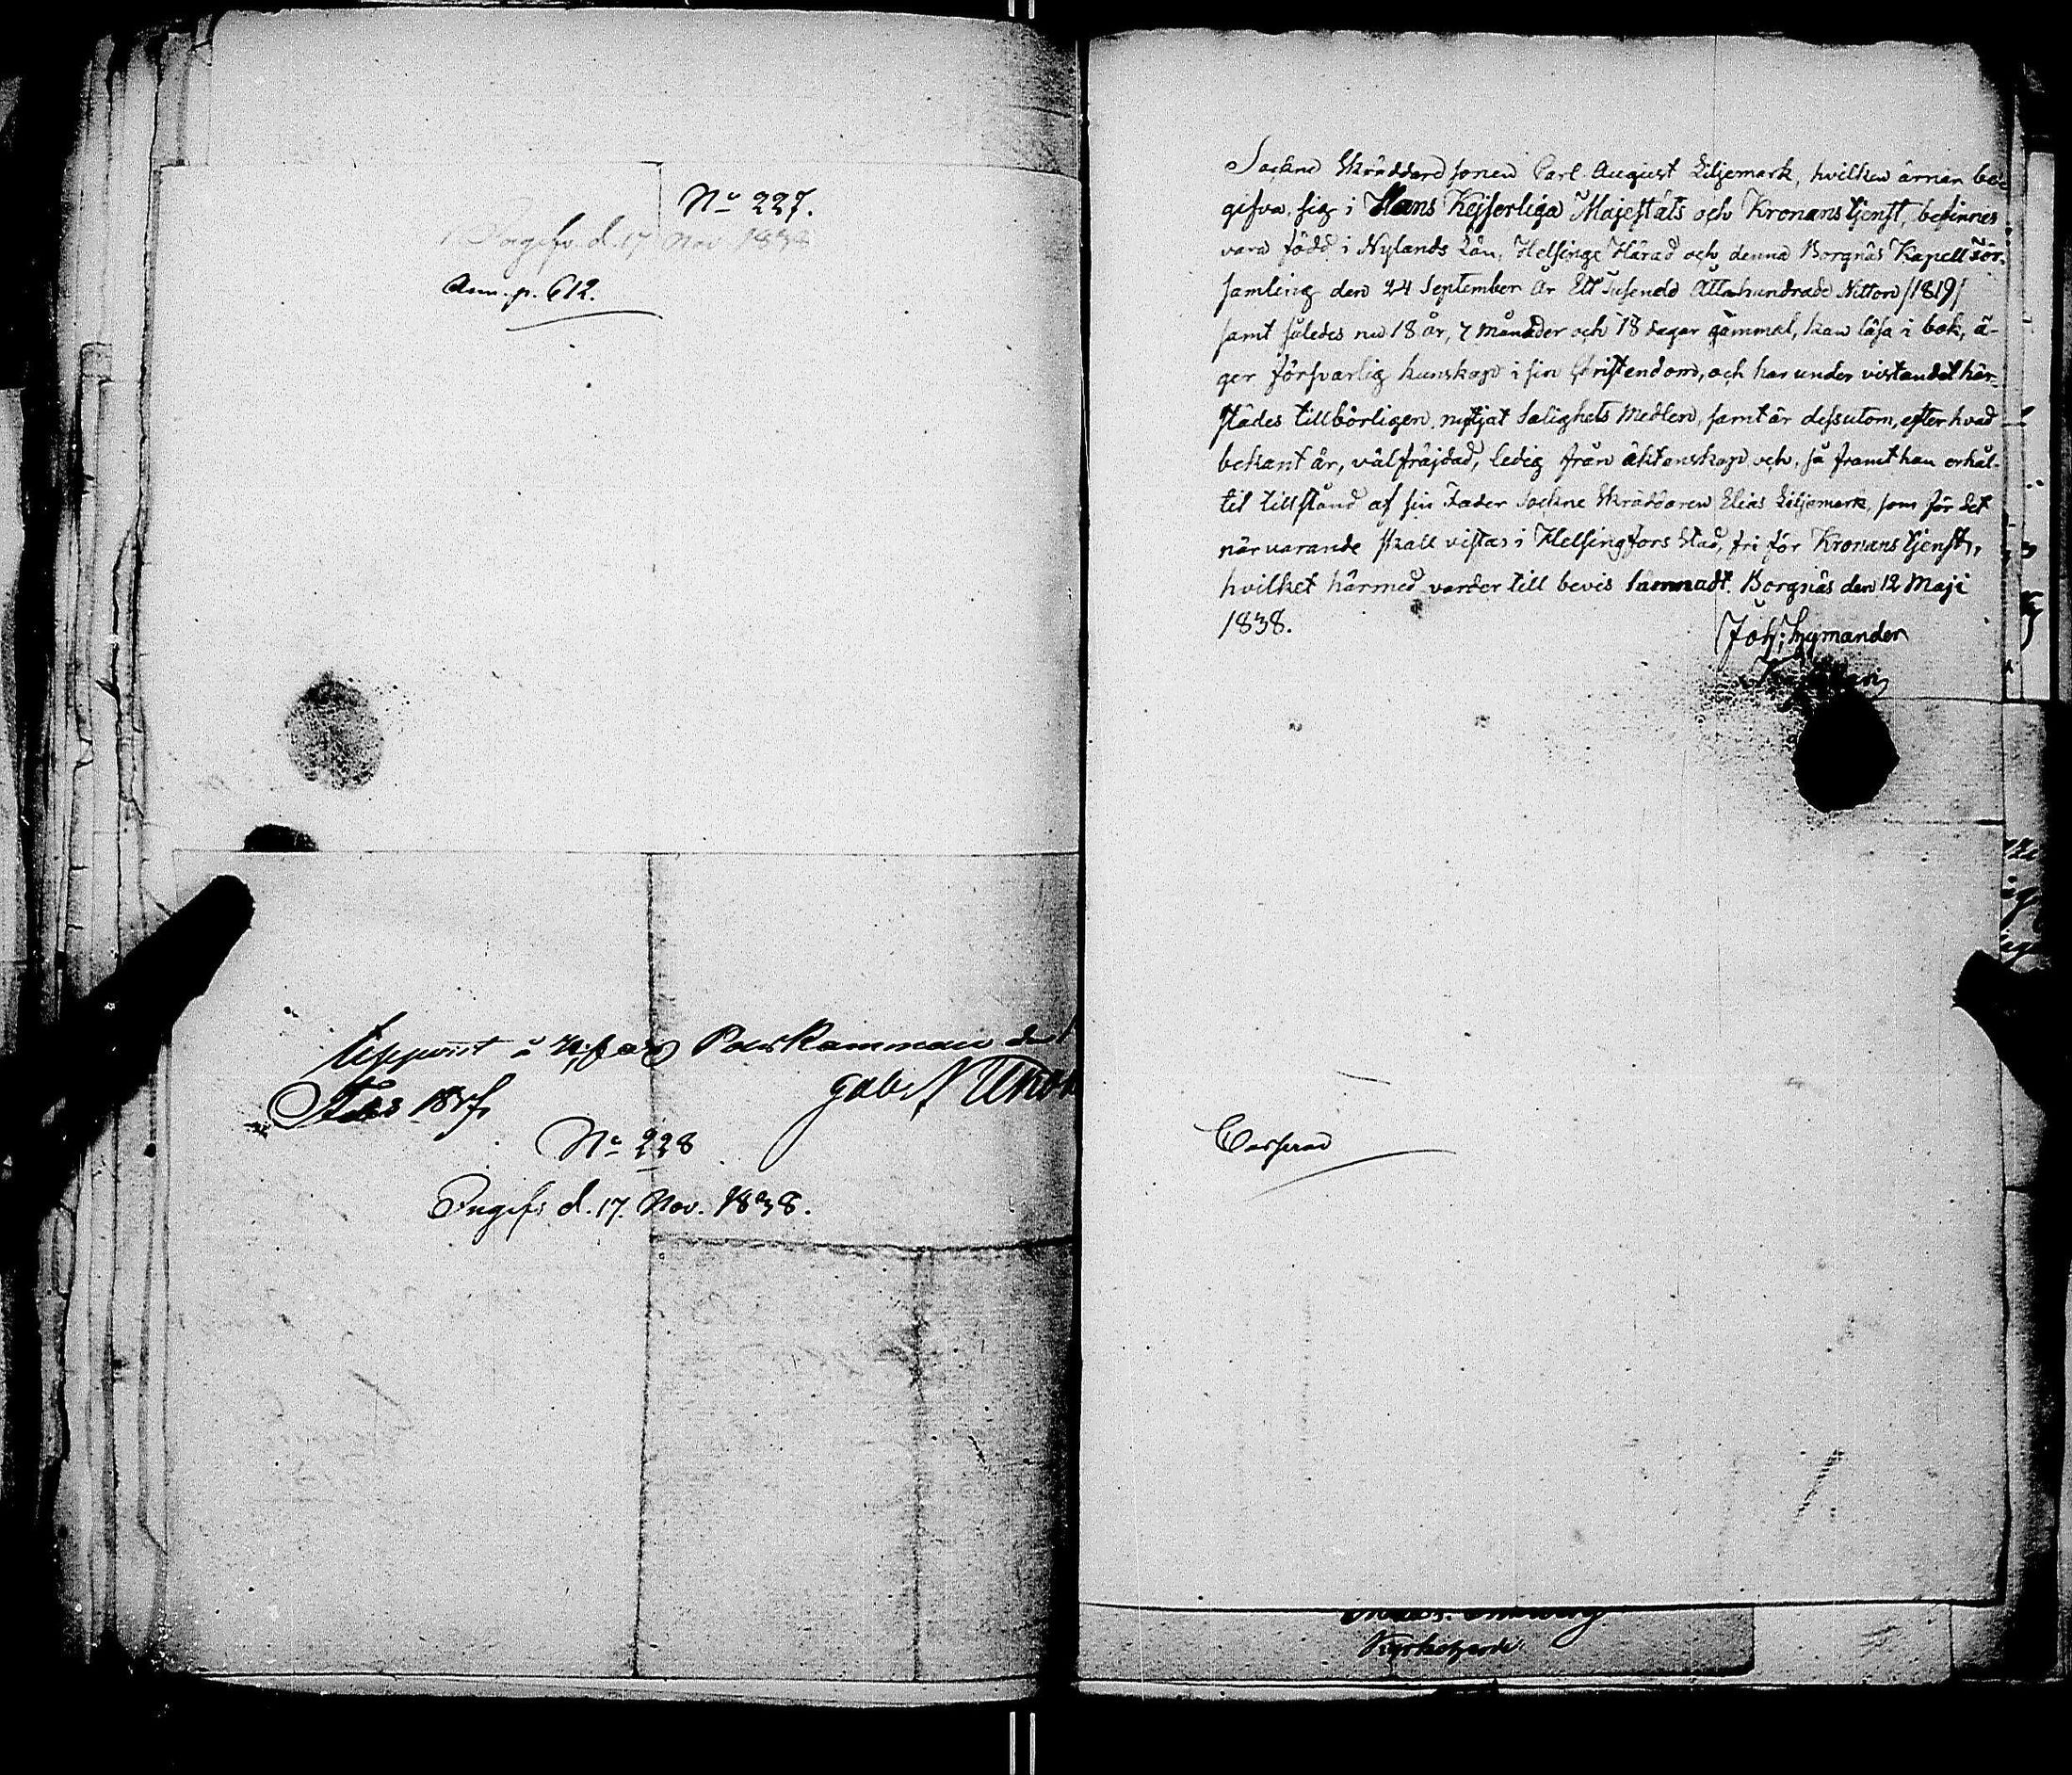 No 227.
Ingifv. d. 17 Nov. 1838
Ann. p. 612.
Uppvist å Pass Kammaren d
No 228
Ingifs d. 17. Nov. 1838.
Sockne Skräddare sonen Carl August Liljemark, hvilken ärnar be-
gifva sig i Hans Kejserliga Majestäts och Kronans tjenst, befinnes
vara född i Nylands Län, Helsinge Härad och denna Borgnäs Kapell för-
samling den 24 September år Ett tusende Åttahundrade Nitton /1819/
samt således nu 18 år, 7 månader och 18 dagar gammal, kan läsa i bok, ä-
ger försvarlig kunskap i sin Christendom, och har under vistandet här-
städes tillbörligen nyttjat Salighets Medlen, samt är dessutom, efter hvad
bekant är, välfräjdad, ledig från äktenskap och, så framt han erhål-
lit tillstånd af sin Fader Sockne Skräddaren Elias Liljemark, som för det
närvarande skall vistas i Helsingfors Stad, fri för Kronans tjenst,
hvilket härmed varder till bevis lämnadt. Borgnäs den 12 Maji
1838.
Joh: Lymander
Kapellan
Casserad
Kyrkoherde